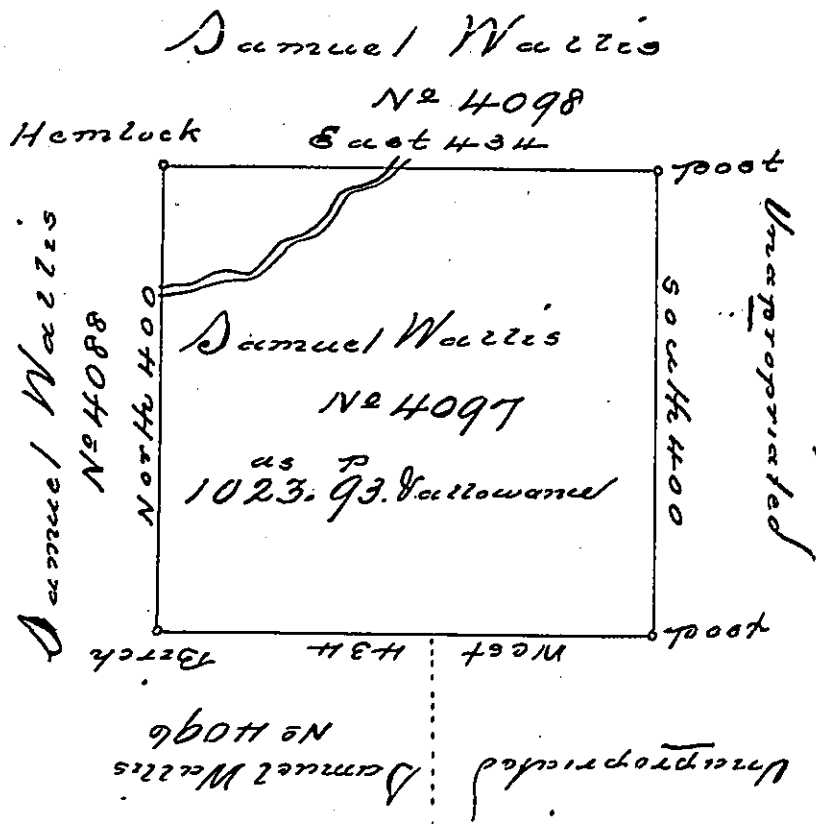 Samuel Wallis
Nº 4098
Hemlock
East 434
post
Samuel Wallis
Nº 4088
North 400
Samuel Wallis
Nº 4097
as p
1023. 93. & allowance
South 400
Unapropriated
Birch
434
West
post
Nº 4096
Samuel Wallis
Unapropriated